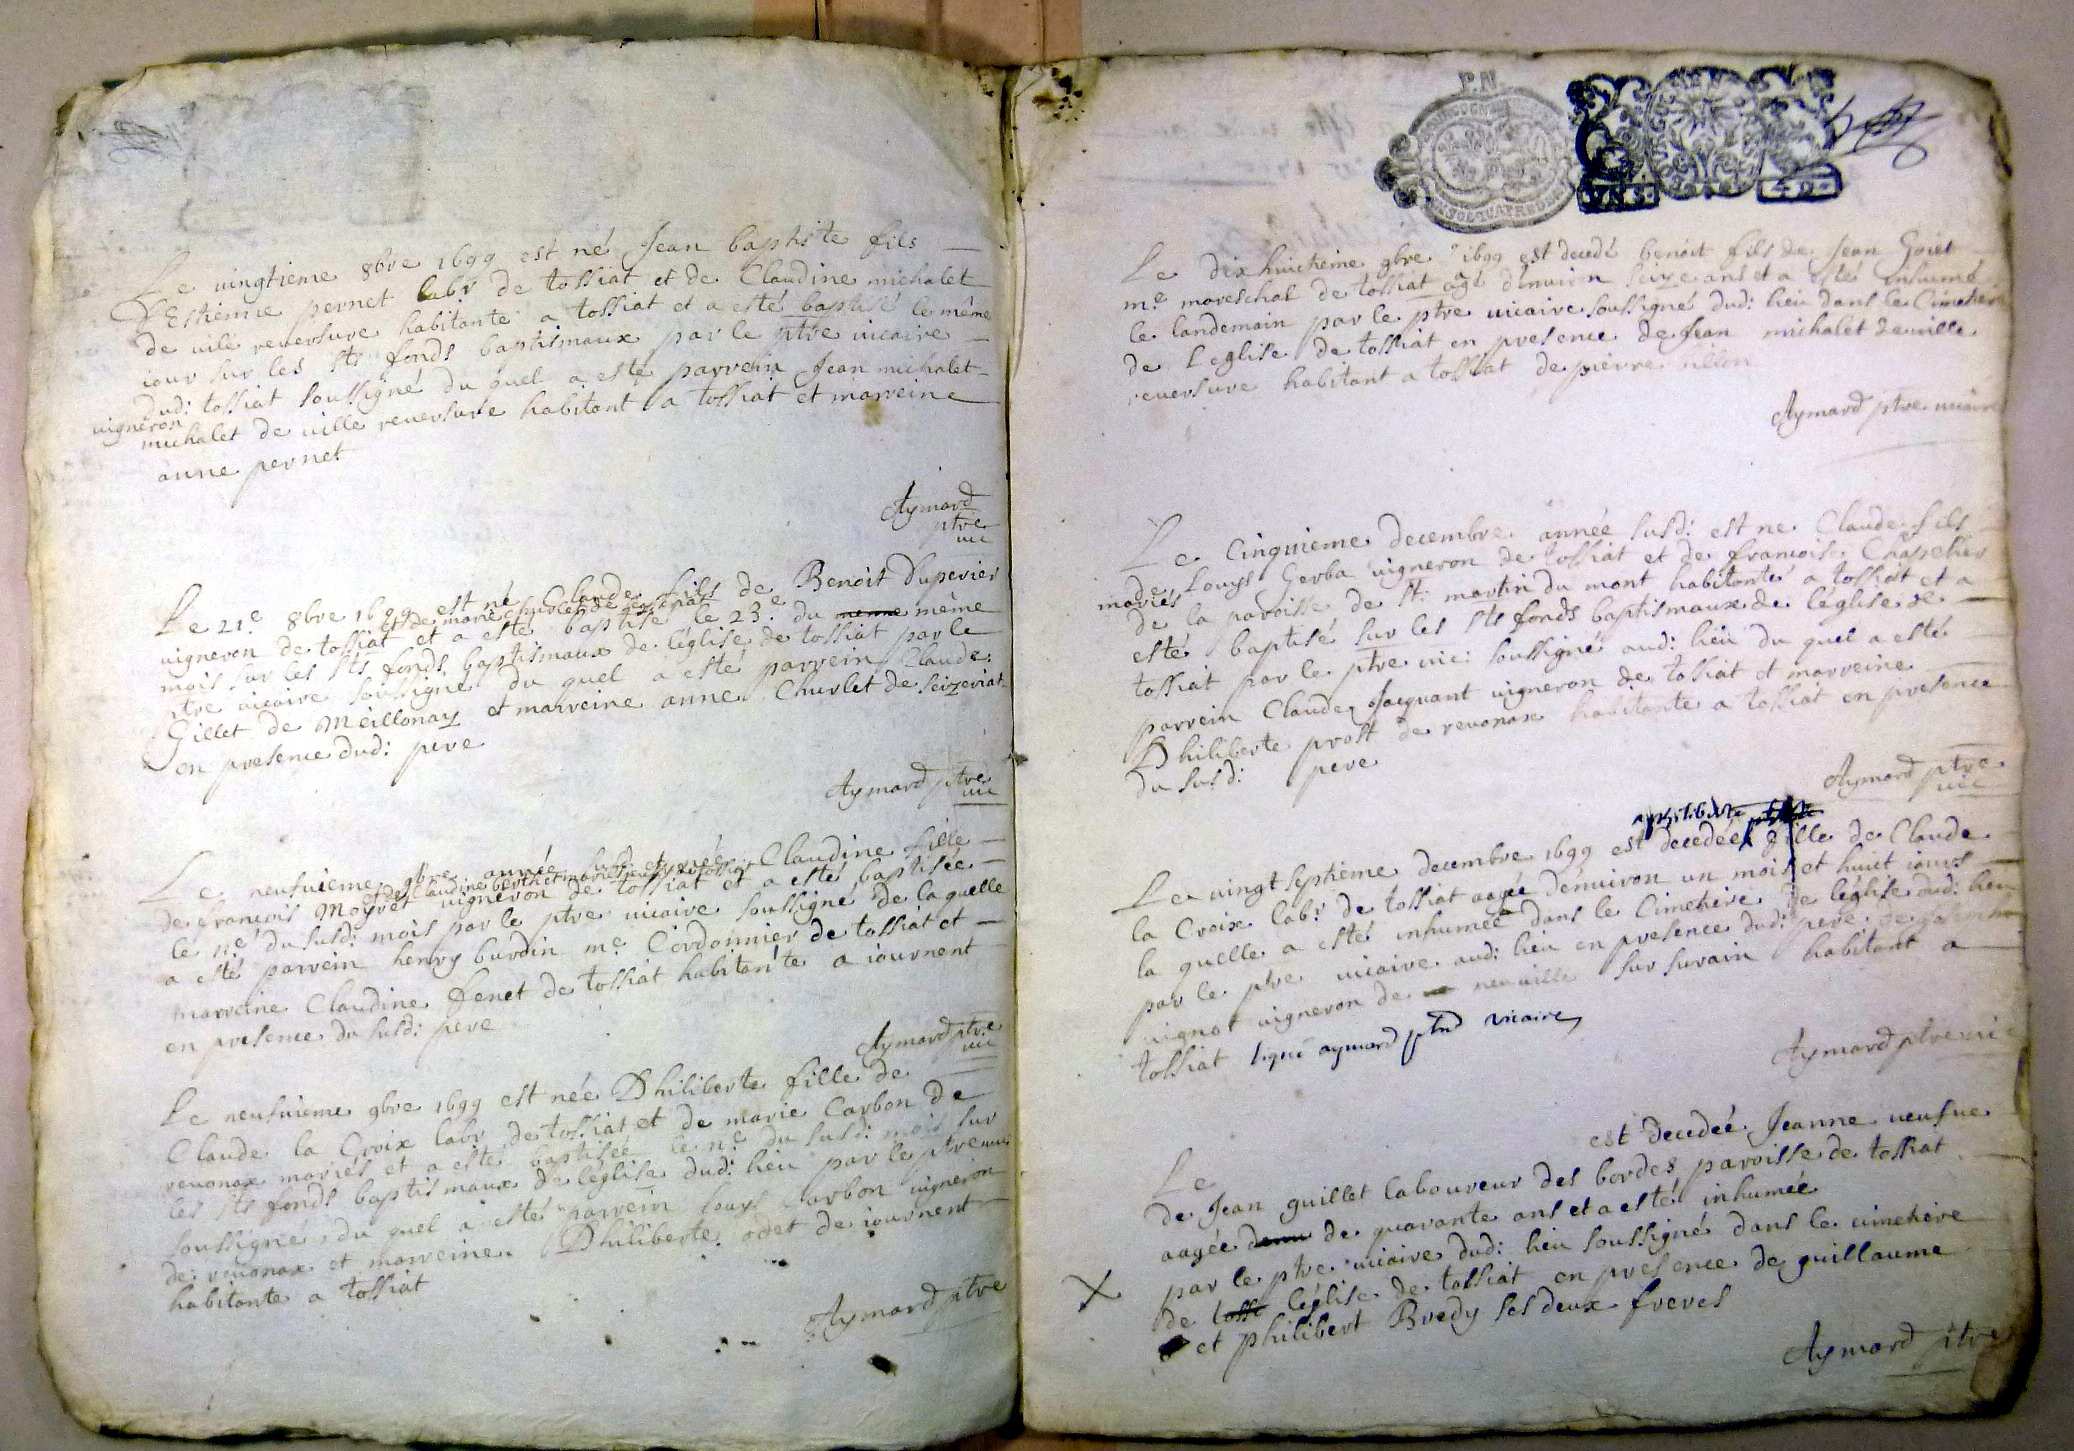 Le vingtieme 8bre 1699 est né Jean baptiste fils
D'Estienne pernet labr de tossiat et de Claudine michalet
de vile reversure habitante a tossiat et a esté baptisé le même
iour sur les sts fonds baptismaux par le ptre vicaire
dud: tossiat soussigné du quel a esté parrein Jean michalet
vigneron
michalet de ville reversure habitant a tossiat et marreine
anne pernet
Aymard
ptre
vic
Le 21e 8bre 1699 est né Claude fils de Benoit Duperier
et de marie Churlet de
vigneron de tossiat et a esté baptisé le 23e du même
mois sur les sts fonds baptismaux de l'église de tossiat par le
ptre vicaire soussigné du quel a esté parrein Claude
Gillet de Meillonay et marreine anne Churlet de Seizeriat
en presence dud: pere
Aymard ptre
vic
Le neufuieme 9bre année susd: est née Claudine fille
et de Claudine berthet mariés
de francois Moyret vigneron de tossiat et a esté baptisée
le ne du susd: mois par le ptre vicaire soussigné de la quelle
a esté parrein henry burdin me Cordonnier de tossiat et
marreine Claudine fenet de tossiat habitante a iournent
en presence du susd: pere
Aymard ptre
vic
Le neufuieme 9bre 1699 est née Philiberte fille de
Claude la Croix labr de tossiat et de marie Carbon de
revonax mariés et a esté baptisée le ne du susd: mois sur
les sts fonds baptismaux de l'église dud: lieu par le ptre
soussigné du quel a esté parrein Louys Carbon vigneron
de revonax et marreine Philiberte odet de iournent
habitante a tossiat
Aymard ptre
P.N.
Le dixhuictieme 9bre 1699 est decedé benoit fils de Jean Goiet
me mareschal de tossiat agé d'enuiron seize ans et a esté inhumé
le landemain par le ptre vicaire soussigné dud: lieu dans le Cimetiere
de L'eglise de tossiat en presence de Jean michalet de ville
reversure habitant a tossiat de pierre
Aymard ptre vicaire
Le Cinquieme decembre année susd: est né Claude fils
de Louys Gerba vigneron de tossiat et de francoise Chapelier
mariés
de la paroisse de st: martin du mont habitante a tossiat et a
esté baptisé sur les sts fonds baptismaux de l'église de
tossiat par le ptre vic: soussigné aud: lieu du quel a esté
parrein Claude Jacquant vigneron de tossiat et marreine
Philiberte prost de revonax habitante a tossiat en presence
du susd: pere
Aymard ptre
vic
philiberte
Le vingt septieme decembre 1699 est decedée fille de Claude
la Croix labr de tossiat aagée d'enuiron un mois et huict iours
la quelle a esté inhumée dans le Cimetiere de l'église dud: lieu
par le ptre vicaire aud: lieu en presence dud: pere de
vignot vigneron de neuuille sur surain habitant a
tossiat signé aymard ptre vicaire
Aymard ptre vic
est decedée Jeanne veufue
Le
de Jean guillet laboureur des bordes paroisse de tossiat
aagée de quarante ans et a esté inhumée
par le ptre vicaire dud: lieu soussigné dans le cimetiere
X
de l'église de tossiat en presence de guillaume
et philibert Bredy ses deux freres
Aymard ptre